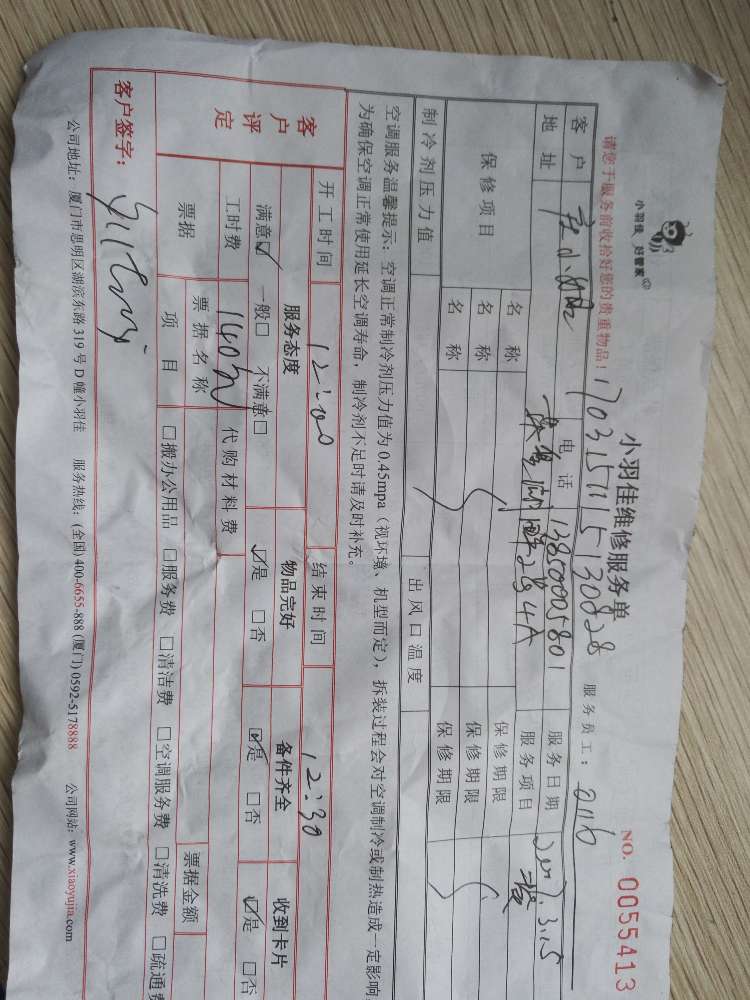 小羽佳 好管家
小羽佳维修服务单
NO. 0055413
请您于服务前收拾好您的贵重物品!
1703151115130828
服务员工: 2116
客户
电话 13850005801
服务日期 2017.3.15
地址
28 4A
服务项目
保修项目
名称
保修期限
名称
保修期限
名称
保修期限
制冷剂压力值
出风口温度
空调服务温馨提示: 空调正常制冷剂压力值为0.45mpa (视环境、机型而定), 拆装过程会对空调制冷或制热造成一定影响
为确保空调正常使用延长空调寿命, 制冷剂不足时请及时补充。
客户评定
开工时间 12:00
结束时间 12:30
服务态度
物品完好
备件齐全
收到卡片
满意☑ 一般□ 不满意□
☑是 □否
☑是 □否
☑是 □否
工时费 140元
代购材料费
票据
票据名称
票据金额
项目
□搬办公用品 □服务费 □清洁费 □空调服务费 □清洗费 □疏通费
客户签字:
公司地址: 厦门市思明区湖滨东路319号D幢小羽佳 服务热线: (全国) 400-6655-888 (厦门) 0592-5178888 公司网站: www.xiaoyujia.com